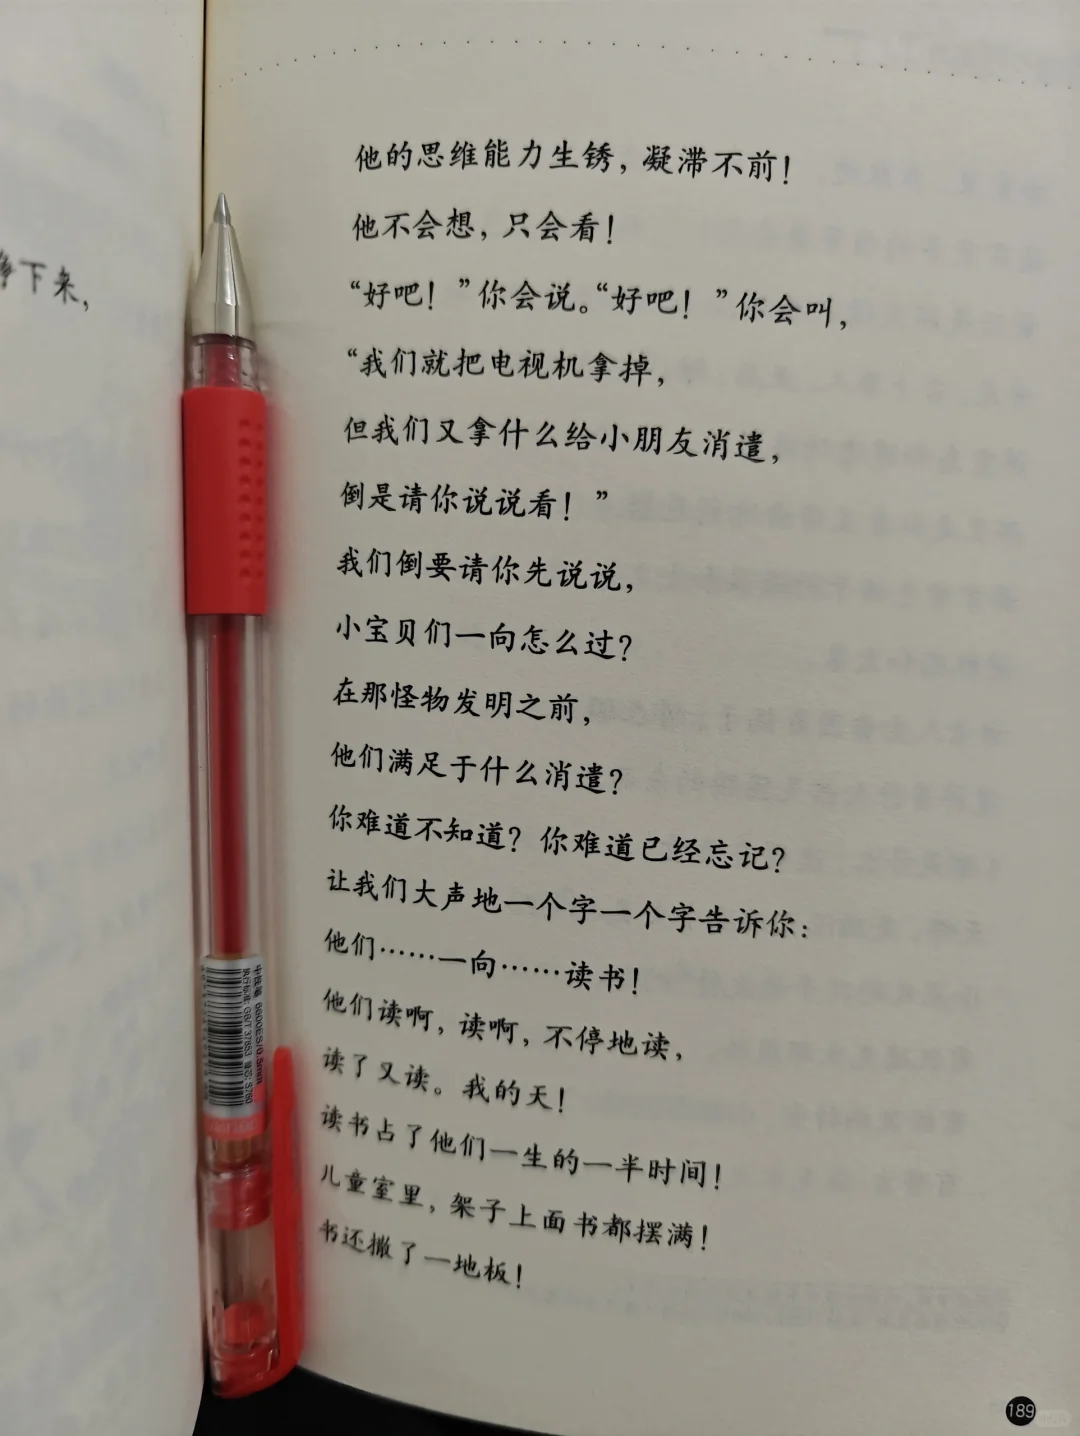 下来，
他的思维能力生锈，凝滞不前！
他不会想，只会看！
“好吧！”你会说。“好吧！”你会叫，
“我们就把电视机拿掉，
但我们又拿什么给小朋友消遣，
倒是请你说说看！”
我们倒要请你先说说，
小宝贝们一向怎么过？
在那怪物发明之前，
他们满足于什么消遣？
你难道不知道？你难道已经忘记？
让我们大声地一个字一个字告诉你：
他们……一向……读书！
他们读啊，读啊，不停地读，
读了又读。我的天！
读书占了他们一生的一半时间！
儿童室里，架子上面书都摆满！
书还撒了一地板！
中性笔 6600ES/0.5mm
执行标准: GB/T 37853 替芯: S760
189